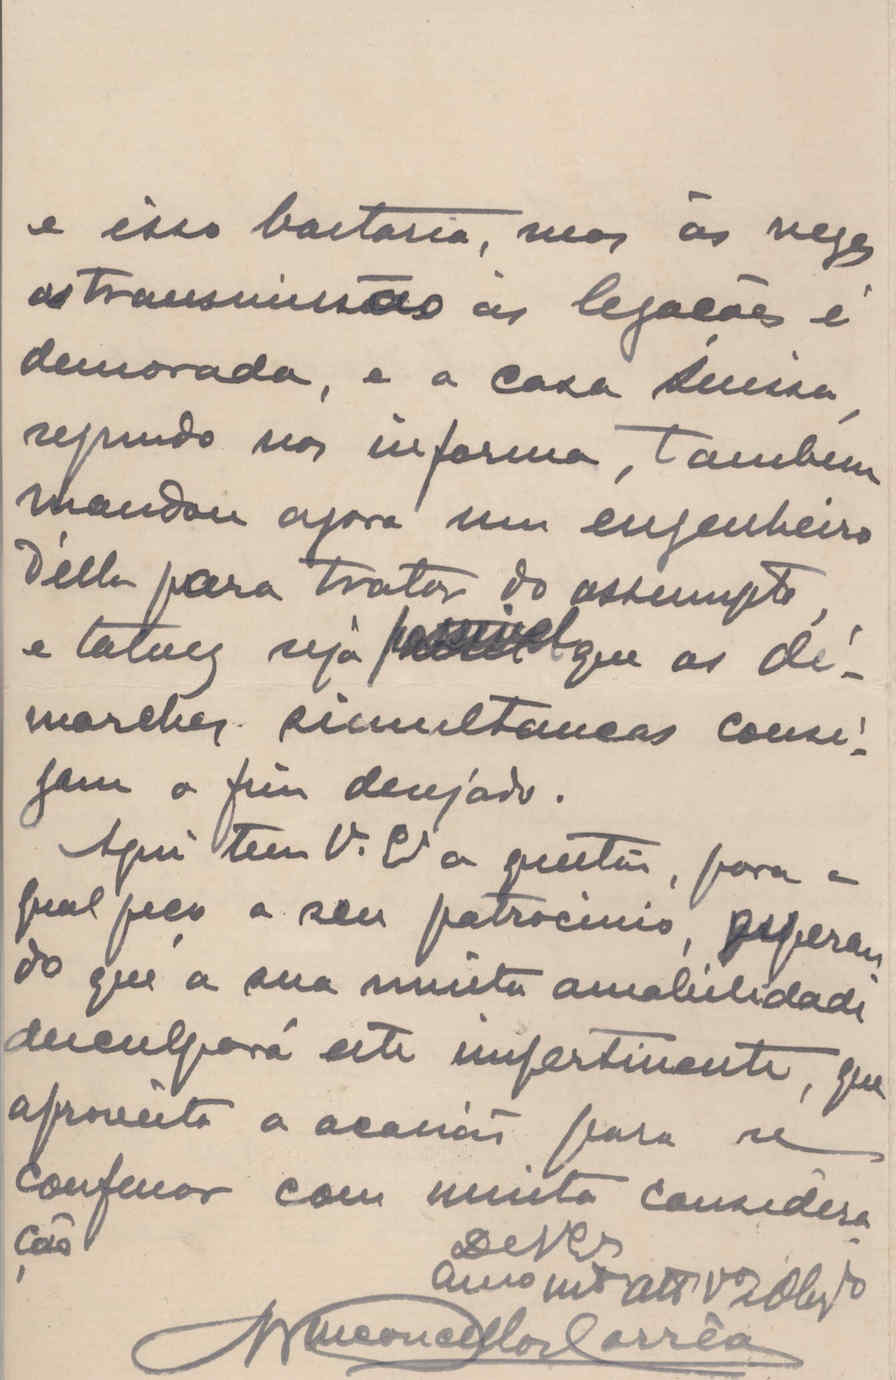 e isso bastaria, mas às vezes
as transmissão às legações é
demorada, e a casa Suissa,
segundo nos informa, também
mandou agora um engenheiro
d'ella para tratar do assumpto,
e talvez seja possivel que as dé-
marches simultaneas consi-
gam o fim desejado.
Aqui tem V. Exª a questão, para a
qual peço o seu patrocinio, esperan
do que a sua muita amabilidade
desculpará este impertinente, que
aproveita a occasião para se
confessar com muita considera
ção
De V. Ex
Amo mto att Vor e Obgdo
Vasconcellos Corrêa